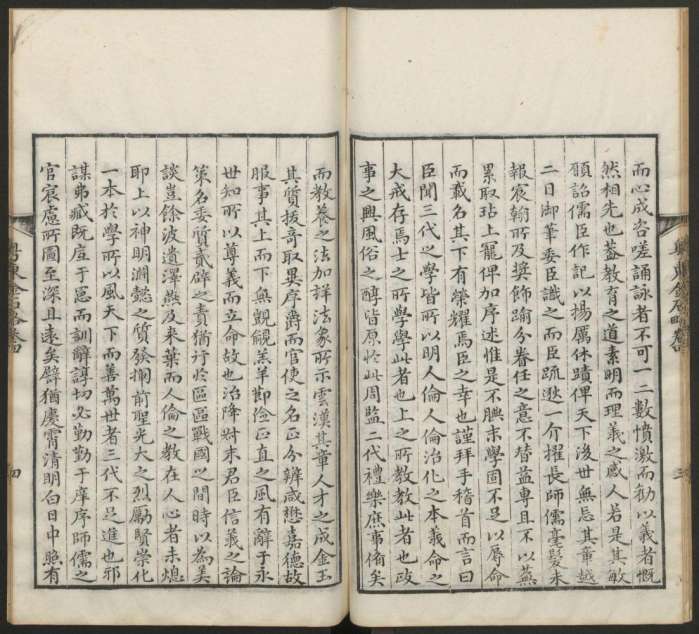 而心成咨嗟誦詠者不可一二數憤激而勸以義者慨
然相先也蓋教育之道素明而理義之感人若是其敏
願詔儒臣作記以揚厲休蹟俾天下後世無忘其章越
二日御筆委臣識之而臣疏逖一介擢長師儒毫髮未
報宸翰所及奬飾踰分眷任之意不替益專且不以蕪
累取玷上寵俾加序述惟是不腆末學固不足以辱命
而載名其下有榮耀焉臣之幸也謹拜手稽首而言曰
臣聞三代之學皆所以明人倫人倫治化之本義命之
大戒存焉士之所學學此者也上之所教教此者也政
事之興風俗之醇皆原於此周監二代禮樂庶事備矣
而教養之法加詳法象所示雲漢其章人才之成金玉
其質拔奇取異序爵而官使之名正分辨咸懋嘉德故
服事其上而下無覬覦羔羊節儉正直之風有辭于永
世知所以尊義而立命故也治降叔末君臣信義之論
策名委質貳辟之責猶行於區區戰國之間時以為美
談豈餘波遺澤燕及來葉而人倫之教在人心者未熄
耶上以神明淵懿之質發揮前聖光大之烈勵賢崇化
一本於學所以風天下而善萬世者三代不足進也邪
謀弗臧既底于罰而訓辭諄切必勤勤于庠序師儒之
官宸慮所圖至深且遠矣譬猶慶霄清明白日中照有